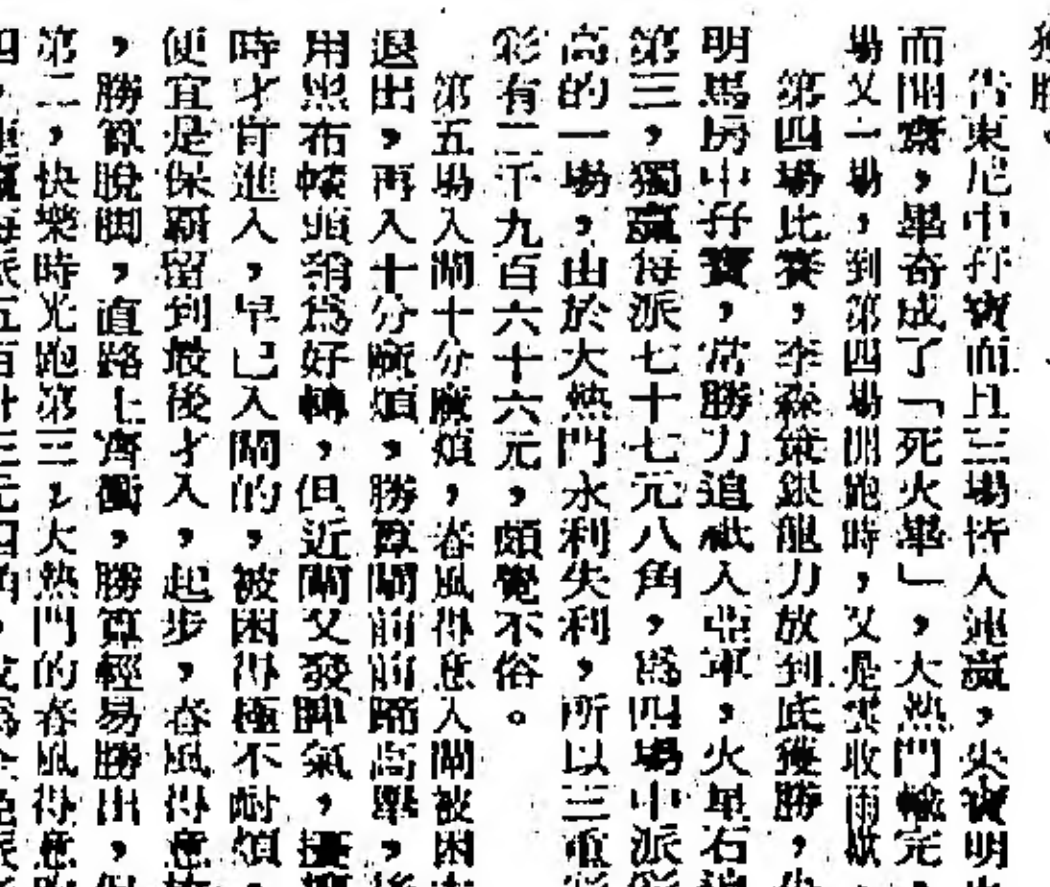 獲勝。
當東尼中孖寶而且三場皆入連贏,尖寶明
而開齋,畢奇成了「死火畢」,大熱門輸完
場又一場,到第四場開跑時,又是雲收雨歇
第四場比賽,李森策銀龍力放到底獲勝,
明馬房中孖寶,常勝力追祇入亞軍,火星石
第三,獨贏每派七十七元八角,爲四場中派
高的一場,由於大熱門永利失利,所以三重
彩有二千九百六十六元,頗覺不俗。
第五場入閘十分麻煩,春風得意入閘被困
退出,再入十分麻煩,勝算閘前前蹄高舉,
用黑布幪頭稍爲好轉,但近閘又發脾氣,擾
時才肯進入,早已入閘的,被困得極不耐煩
便宜是保霸留到最後才入,起步,春風得意
,勝算脫脚,直路上齊衝,勝算輕易勝出,
第二,快樂時光跑第三,大熱門的春風得意